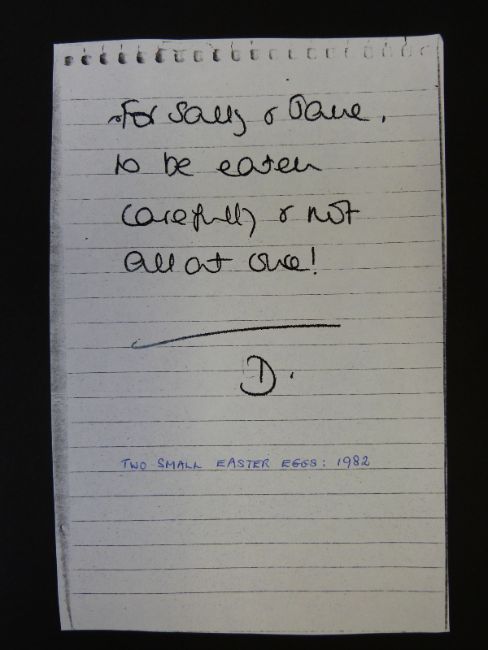 For Sally & Dave,
to be eaten
carefully & not
all at once!
D.
TWO SMALL EASTER EGGS: 1982